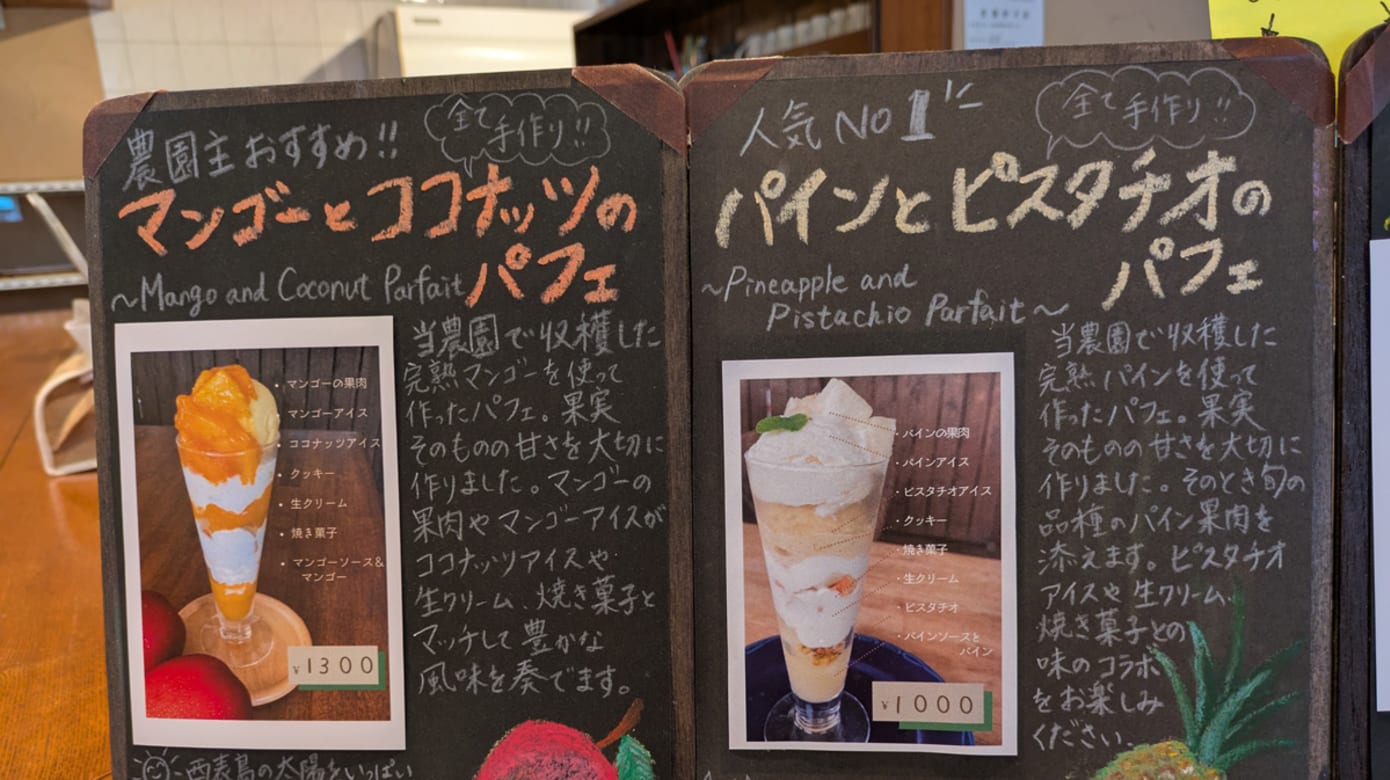 農園主おすすめ!!
全て手作り!!
マンゴーとココナッツの
パフェ
~Mango and Coconut Parfait
・マンゴーの果肉
・マンゴーアイス
・ココナッツアイス
・クッキー
・生クリーム
・焼き菓子
・マンゴーソース&
マンゴー
¥1300
当農園で収穫した
完熟マンゴーを使って
作ったパフェ。果実
そのものの甘さを大切に
作りました。マンゴーの
果肉やマンゴーアイスが
ココナッツアイスや
生クリーム、焼き菓子と
マッチして豊かな
風味を奏でます。
西表島の太陽をいっぱい
人気No1
全て手作り!!
パインとピスタチオの
パフェ
~Pineapple and
Pistachio Parfait~
・パインの果肉
・パインアイス
・ピスタチオアイス
・クッキー
・焼き菓子
・生クリーム
・ピスタチオ
・パインソースと
パイン
¥1000
当農園で収穫した
完熟パインを使って
作ったパフェ。果実
そのものの甘さを大切に
作りました。そのとき旬の
品種のパイン果肉を
添えます。ピスタチオ
アイスや生クリーム、
焼き菓子との
味のコラボ
をお楽しみ
ください。